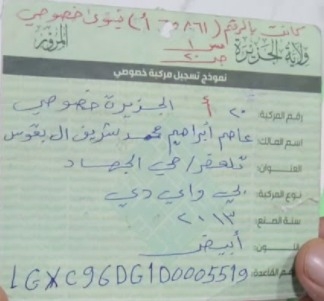 كانت بالرقم (٢٥٨٦١ أ) نينوى خصوصي
ولاية الجزيرة
المرور
نموذج تسجيل مركبة خصوصي
رقم المركبة: ٢٠ أ الجزيرة خصوصي
اسم المالك: عاصم ابراهيم محمد شريف ال بقوس
العنوان: تلعفر / حي الجهاد
نوع المركبة: بي واي دي
سنة الصنع: ٢٠١٣
اللون: أبيض
رقم القاعدة: LGXC96DG1D0005519